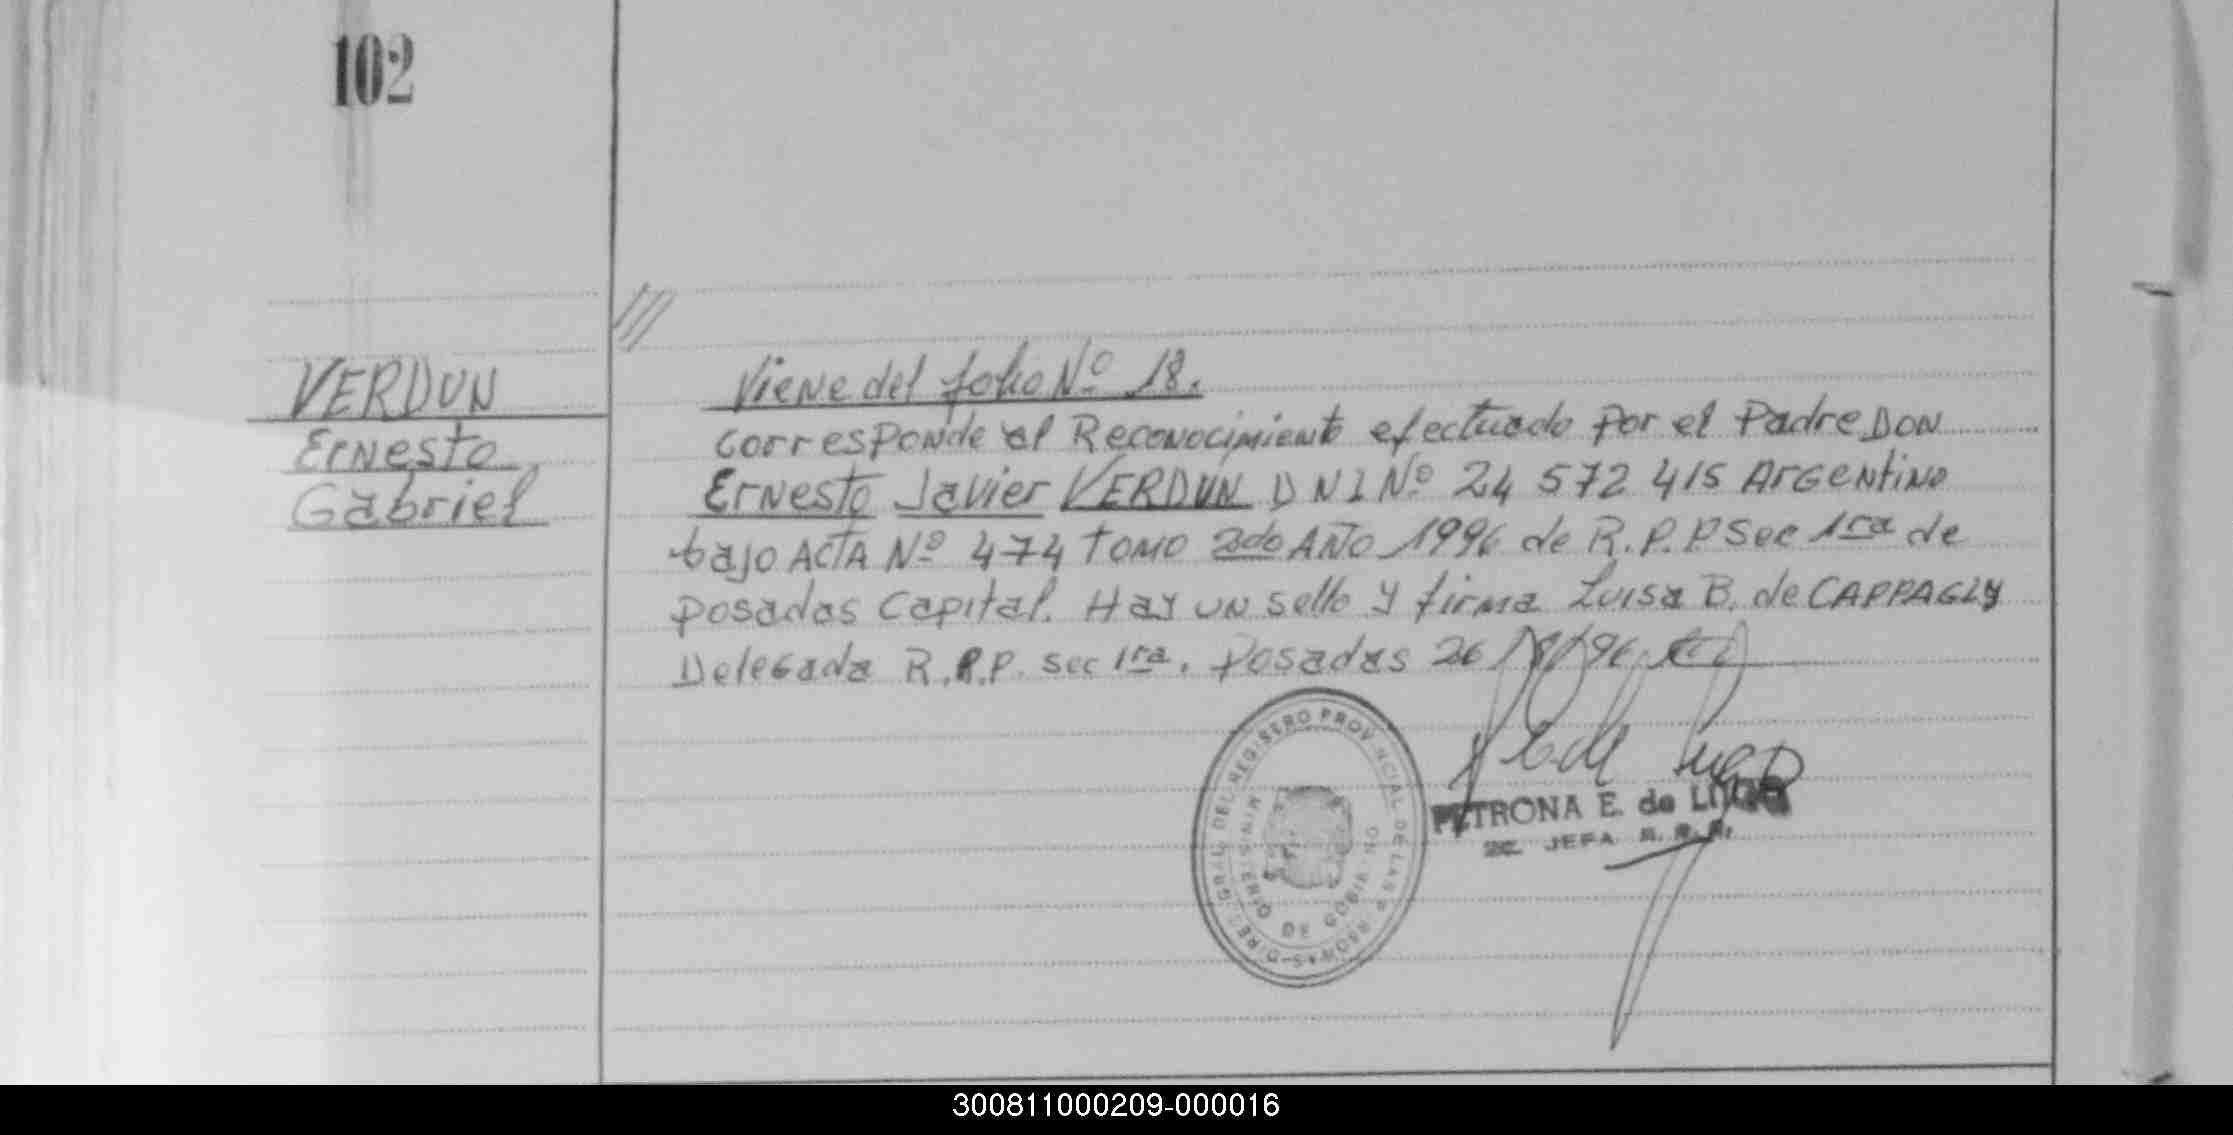 102
///
VERDUN
Ernesto
Gabriel
Viene del folio Nº 18.
corresponde al Reconocimiento efectuado por el Padre DON
Ernesto Javier VERDUN D N I Nº 24 572 415 Argentino
bajo ACTA Nº 474 tomo 2do AÑO 1996 de R.P.P Sec 1ra de
Posadas Capital. Hay un sello y firma Luisa B. de CAPPAGLY
Delegada R.P.P. sec 1ra. Posadas 26
DIREC. GRAL. DEL REGISTRO PROVINCIAL DE LAS PERSONAS
MINISTERIO DE GOBIERNO
PETRONA E. de
JEFA
300811000209-000016